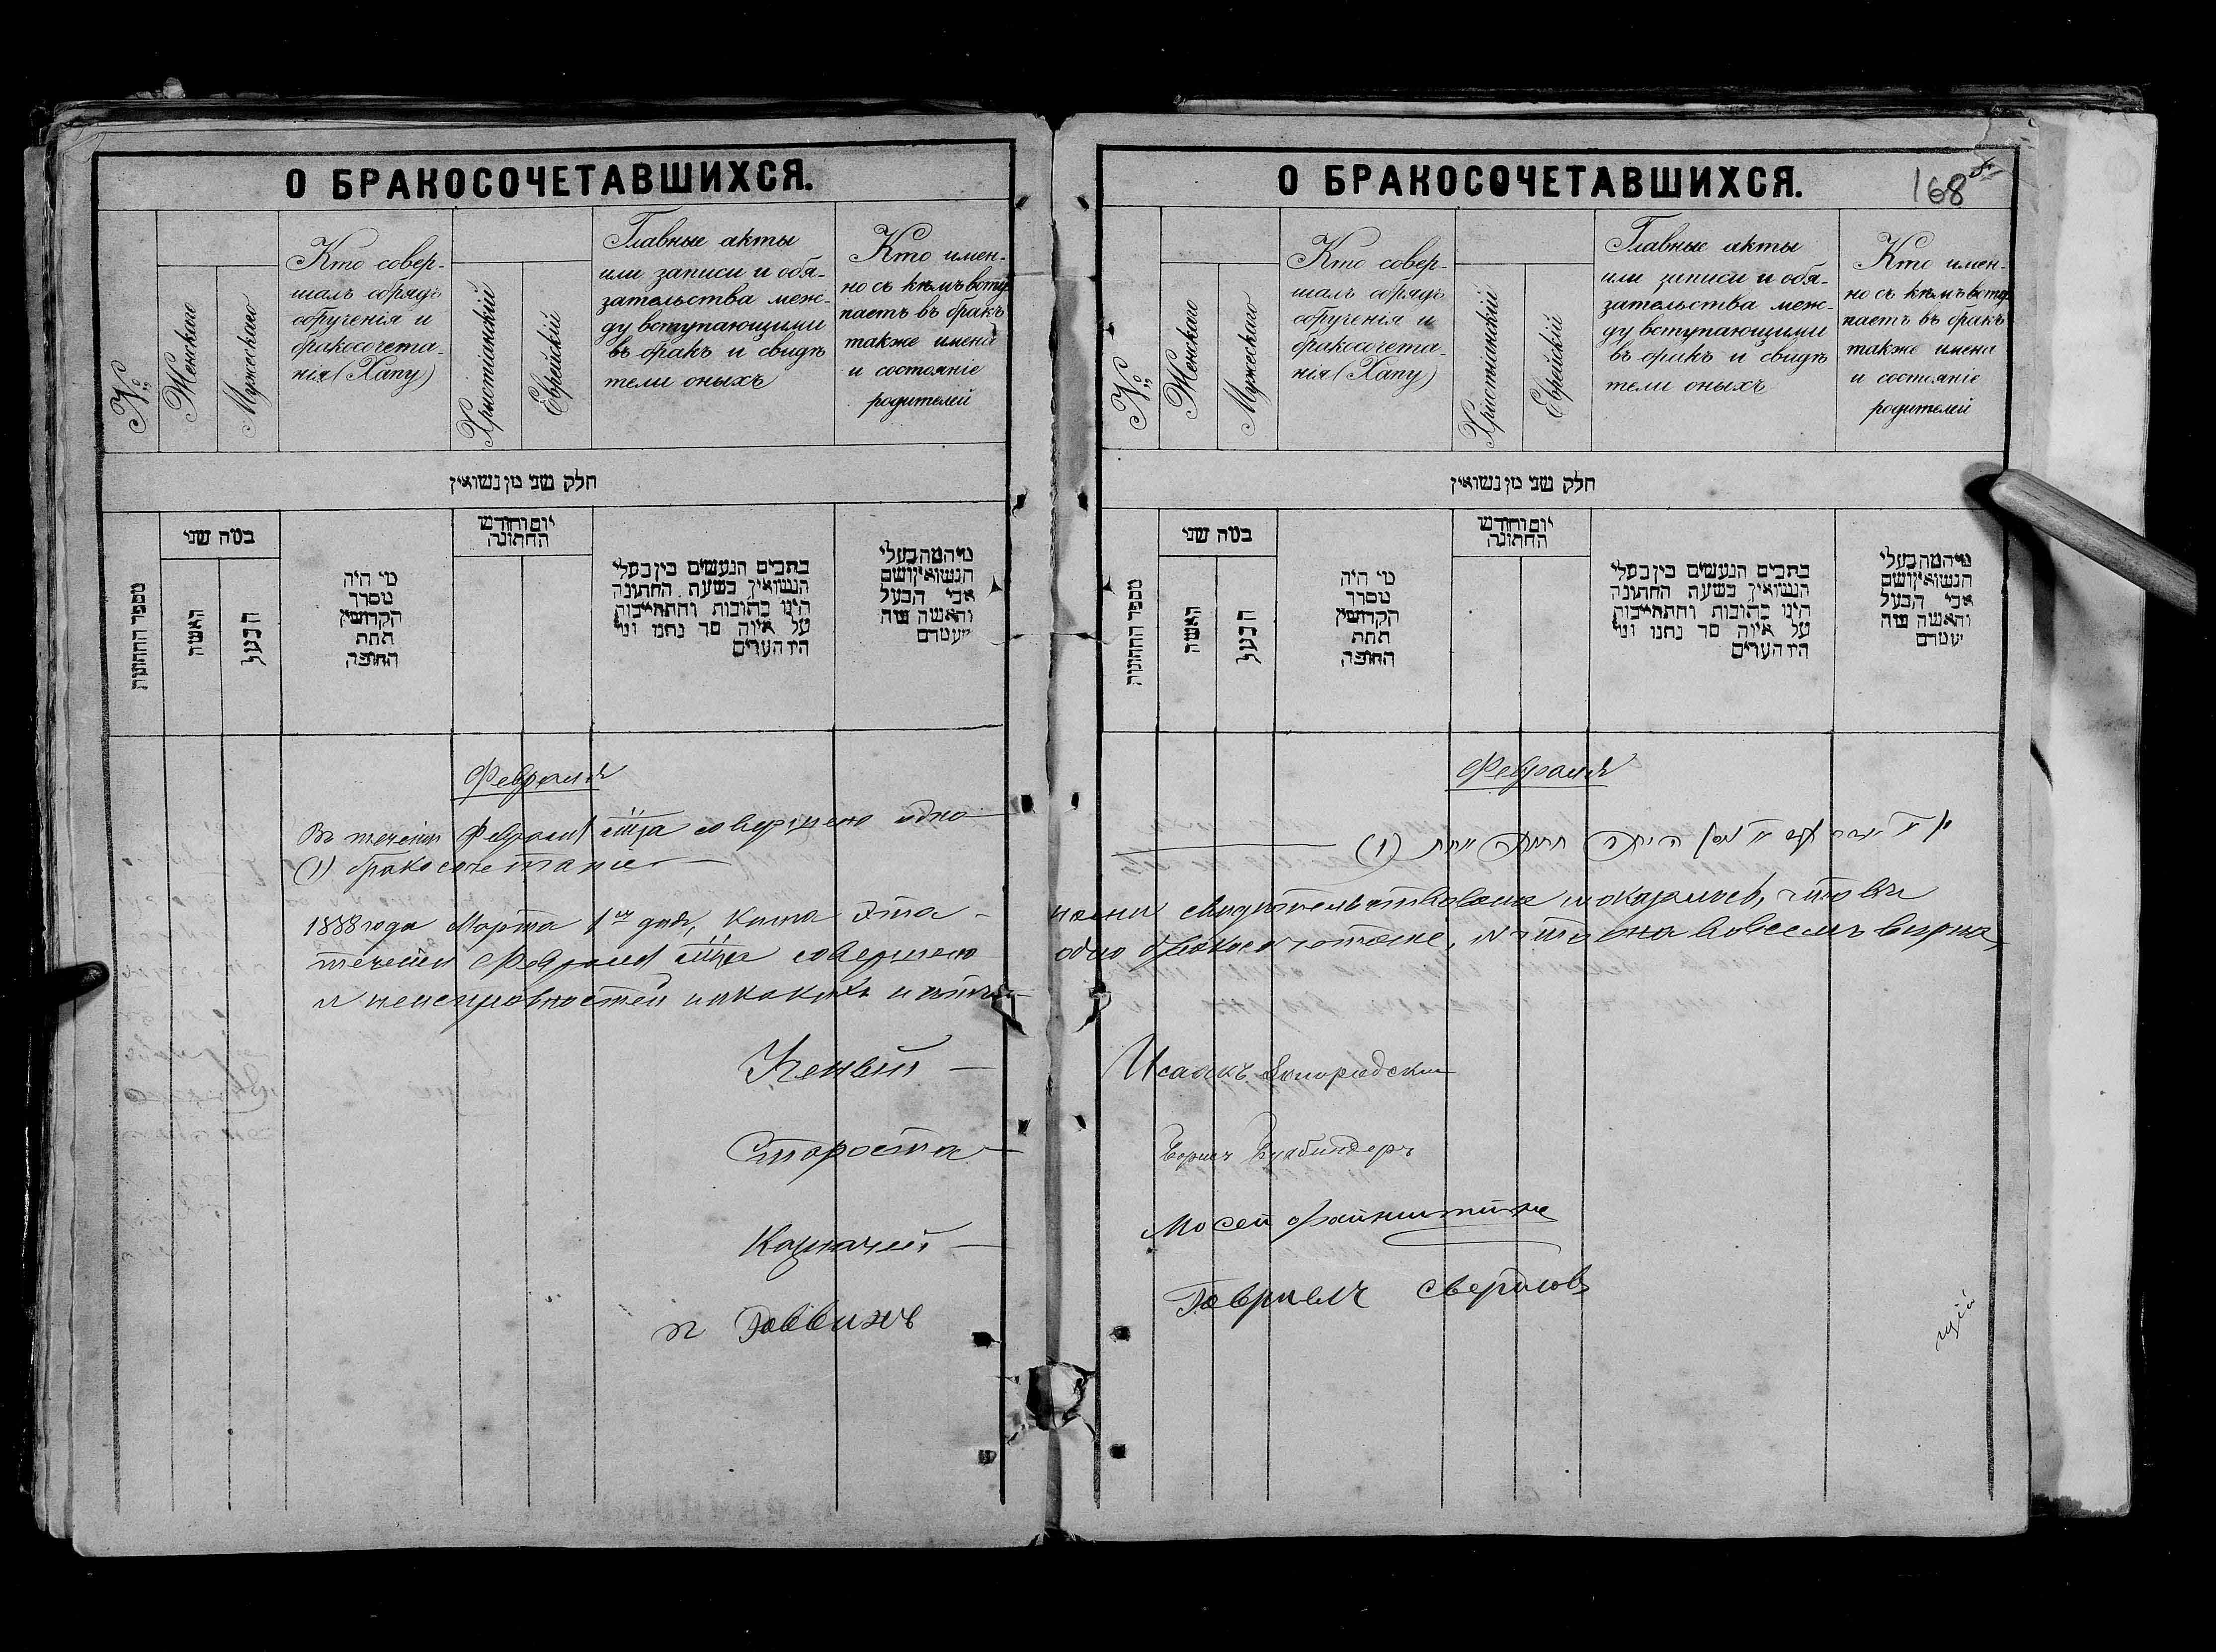 О БРАКОСОЧЕТАВШИХСЯ.
№
Женскаго
Мужескаго
Кто совер-
шалъ обрядъ
обрученія и
бракосочета-
нія (Хапу)
Христіанскій
Еврейскій
Главные акты
или записи и обя-
зательства меж-
ду вступающими
въ бракъ и свидѣ
тели оныхъ
Кто имен-
но съ кѣмъ всту
паетъ въ бракъ
также имена
и состояніе
родителей
חלק שני מן נשואין
מספר החתונות
כמה שני
האשה
הבעל
מי היה
מסדר
הקדושין
תחת
החופה
יום וחודש
החתונה
כתבים הנעשים בין בעלי
הנשואין בשעת החתונה
היגו כתובות והתחייבות
על איזה סך נתנו ומי
היו העדים
מי המה בעלי
הנשואין ושם
אבי הבעל
והאשה ומה
יעמדם
Февраля
Въ теченіи Февраля м-ца совершено одно
(1) бракосочетание
1888 года Марта 1го дня, книга эта
течении Февраля м-ца совершено
и неисправностей никакихъ нѣтъ
Ученый
Староста
Казначей
и Раввинъ
О БРАКОСОЧЕТАВШИХСЯ.
168
№
Женскаго
Мужескаго
Кто совер-
шалъ обрядъ
обрученія и
бракосочета-
нія (Хапу)
Христіанскій
Еврейскій
Главные акты
или записи и обя-
зательства меж-
ду вступающими
въ бракъ и свидѣ
тели оныхъ
Кто имен-
но съ кѣмъ всту
паетъ въ бракъ
также имена
и состояніе
родителей
חלק שני מן נשואין
מספר החתונות
כמה שני
האשה
הבעל
מי היה
מסדר
הקדושין
תחת
החופה
יום וחודש
החתונה
כתבים הנעשים בין בעלי
הנשואין בשעת החתונה
היגו כתובות והתחייבות
על איזה סך נתנו ומי
היו העדים
מי המה בעלי
הנשואין ושם
אבי הבעל
והאשה ומה
יעמדם
Февраля
היתה חתונה אחת (1)
нами свидѣтельствована и оказалось, что въ
одно бракосочетание, и что она вовсемъ вѣрна
Исаакъ
Борисъ
Мосей Файнштейнъ
Гавриелъ Свердловъ